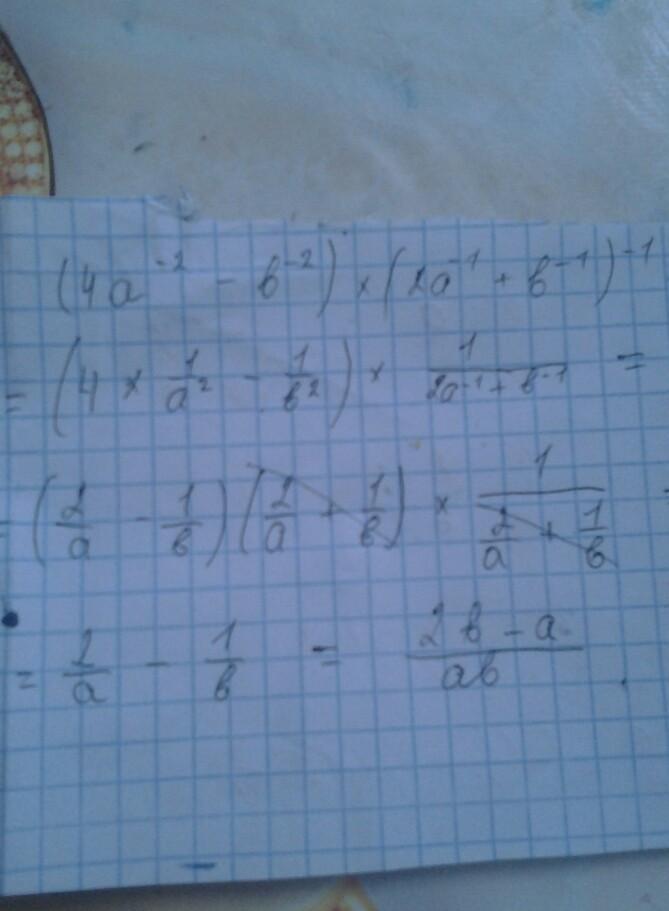 (4a⁻² - b⁻²) × (2a⁻¹ + b⁻¹)⁻¹
= (4 × 1/a² - 1/b²) × 1/(2a⁻¹ + b⁻¹) =
= (2/a - 1/b)(2/a + 1/b) × 1/(2/a + 1/b) =
= 2/a - 1/b = (2b - a)/ab